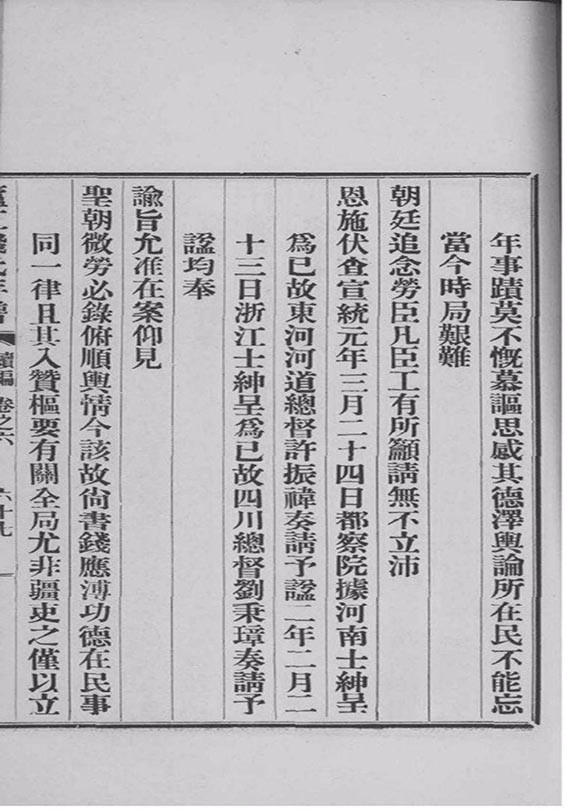 年事蹟莫不慨慕謳思感其德澤輿論所在民不能忘
當今時局艱難
朝廷追念勞臣凡臣工有所籲請無不立沛
恩施伏查宣統元年三月二十四日都察院據河南士紳呈
爲已故東河河道總督許振禕奏請予諡二年二月二
十三日浙江士紳呈爲已故四川總督劉秉璋奏請予
諡均奉
諭旨允准在案仰見
聖朝微勞必錄俯順輿情今該故尙書錢應溥功德在民事
同一律且其入贊樞要有關全局尤非疆吏之僅以立
續編 卷之六 六十九